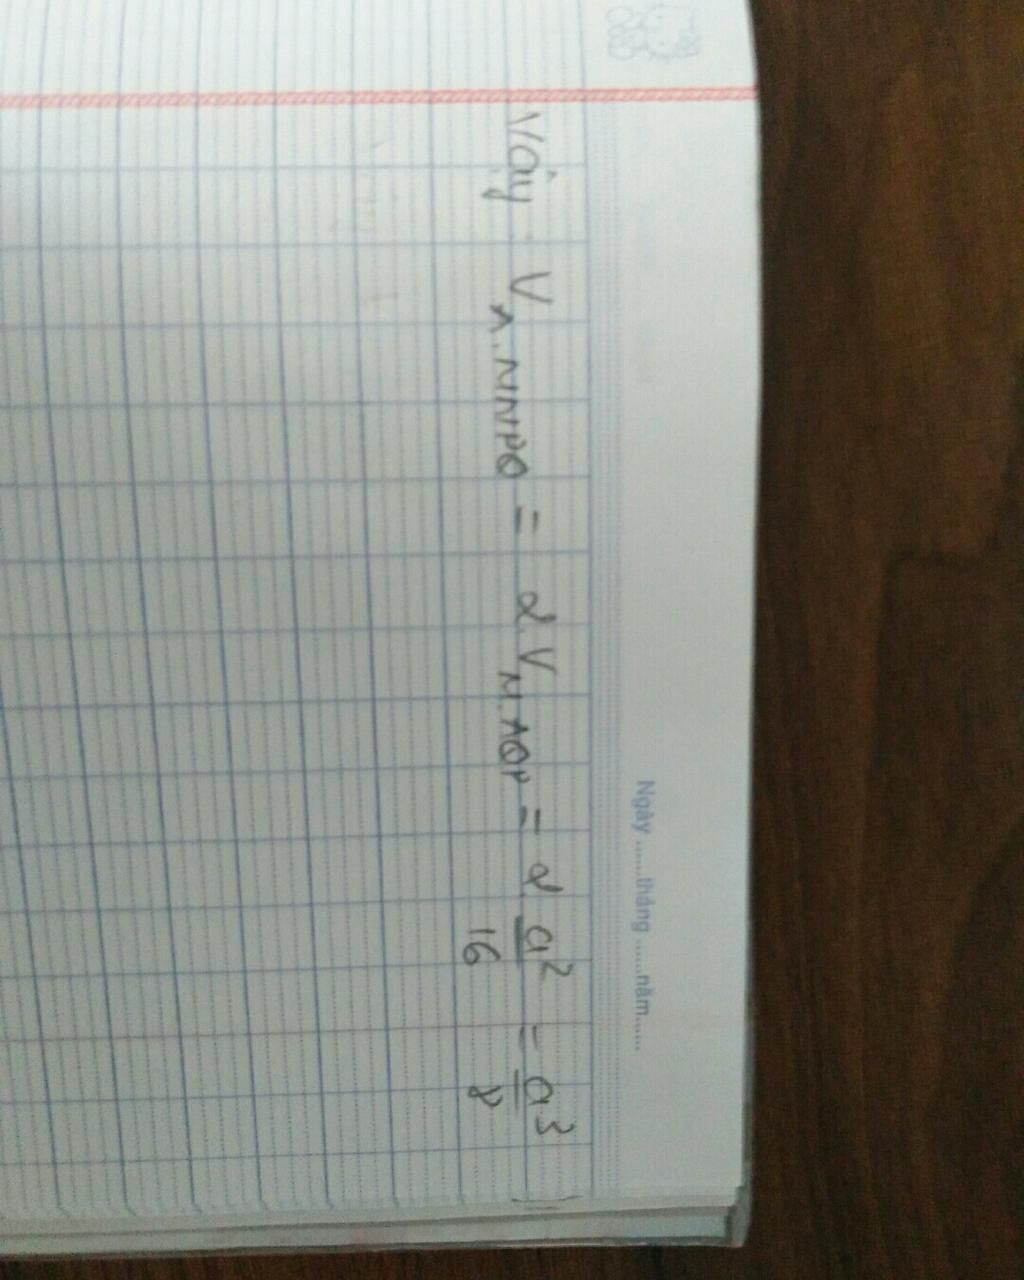 Ngày ......tháng ......năm......
Vậy V_{A.MNPQ} = 2.V_{M.AQP} = 2.\frac{a^2}{16} = \frac{a^3}{8}